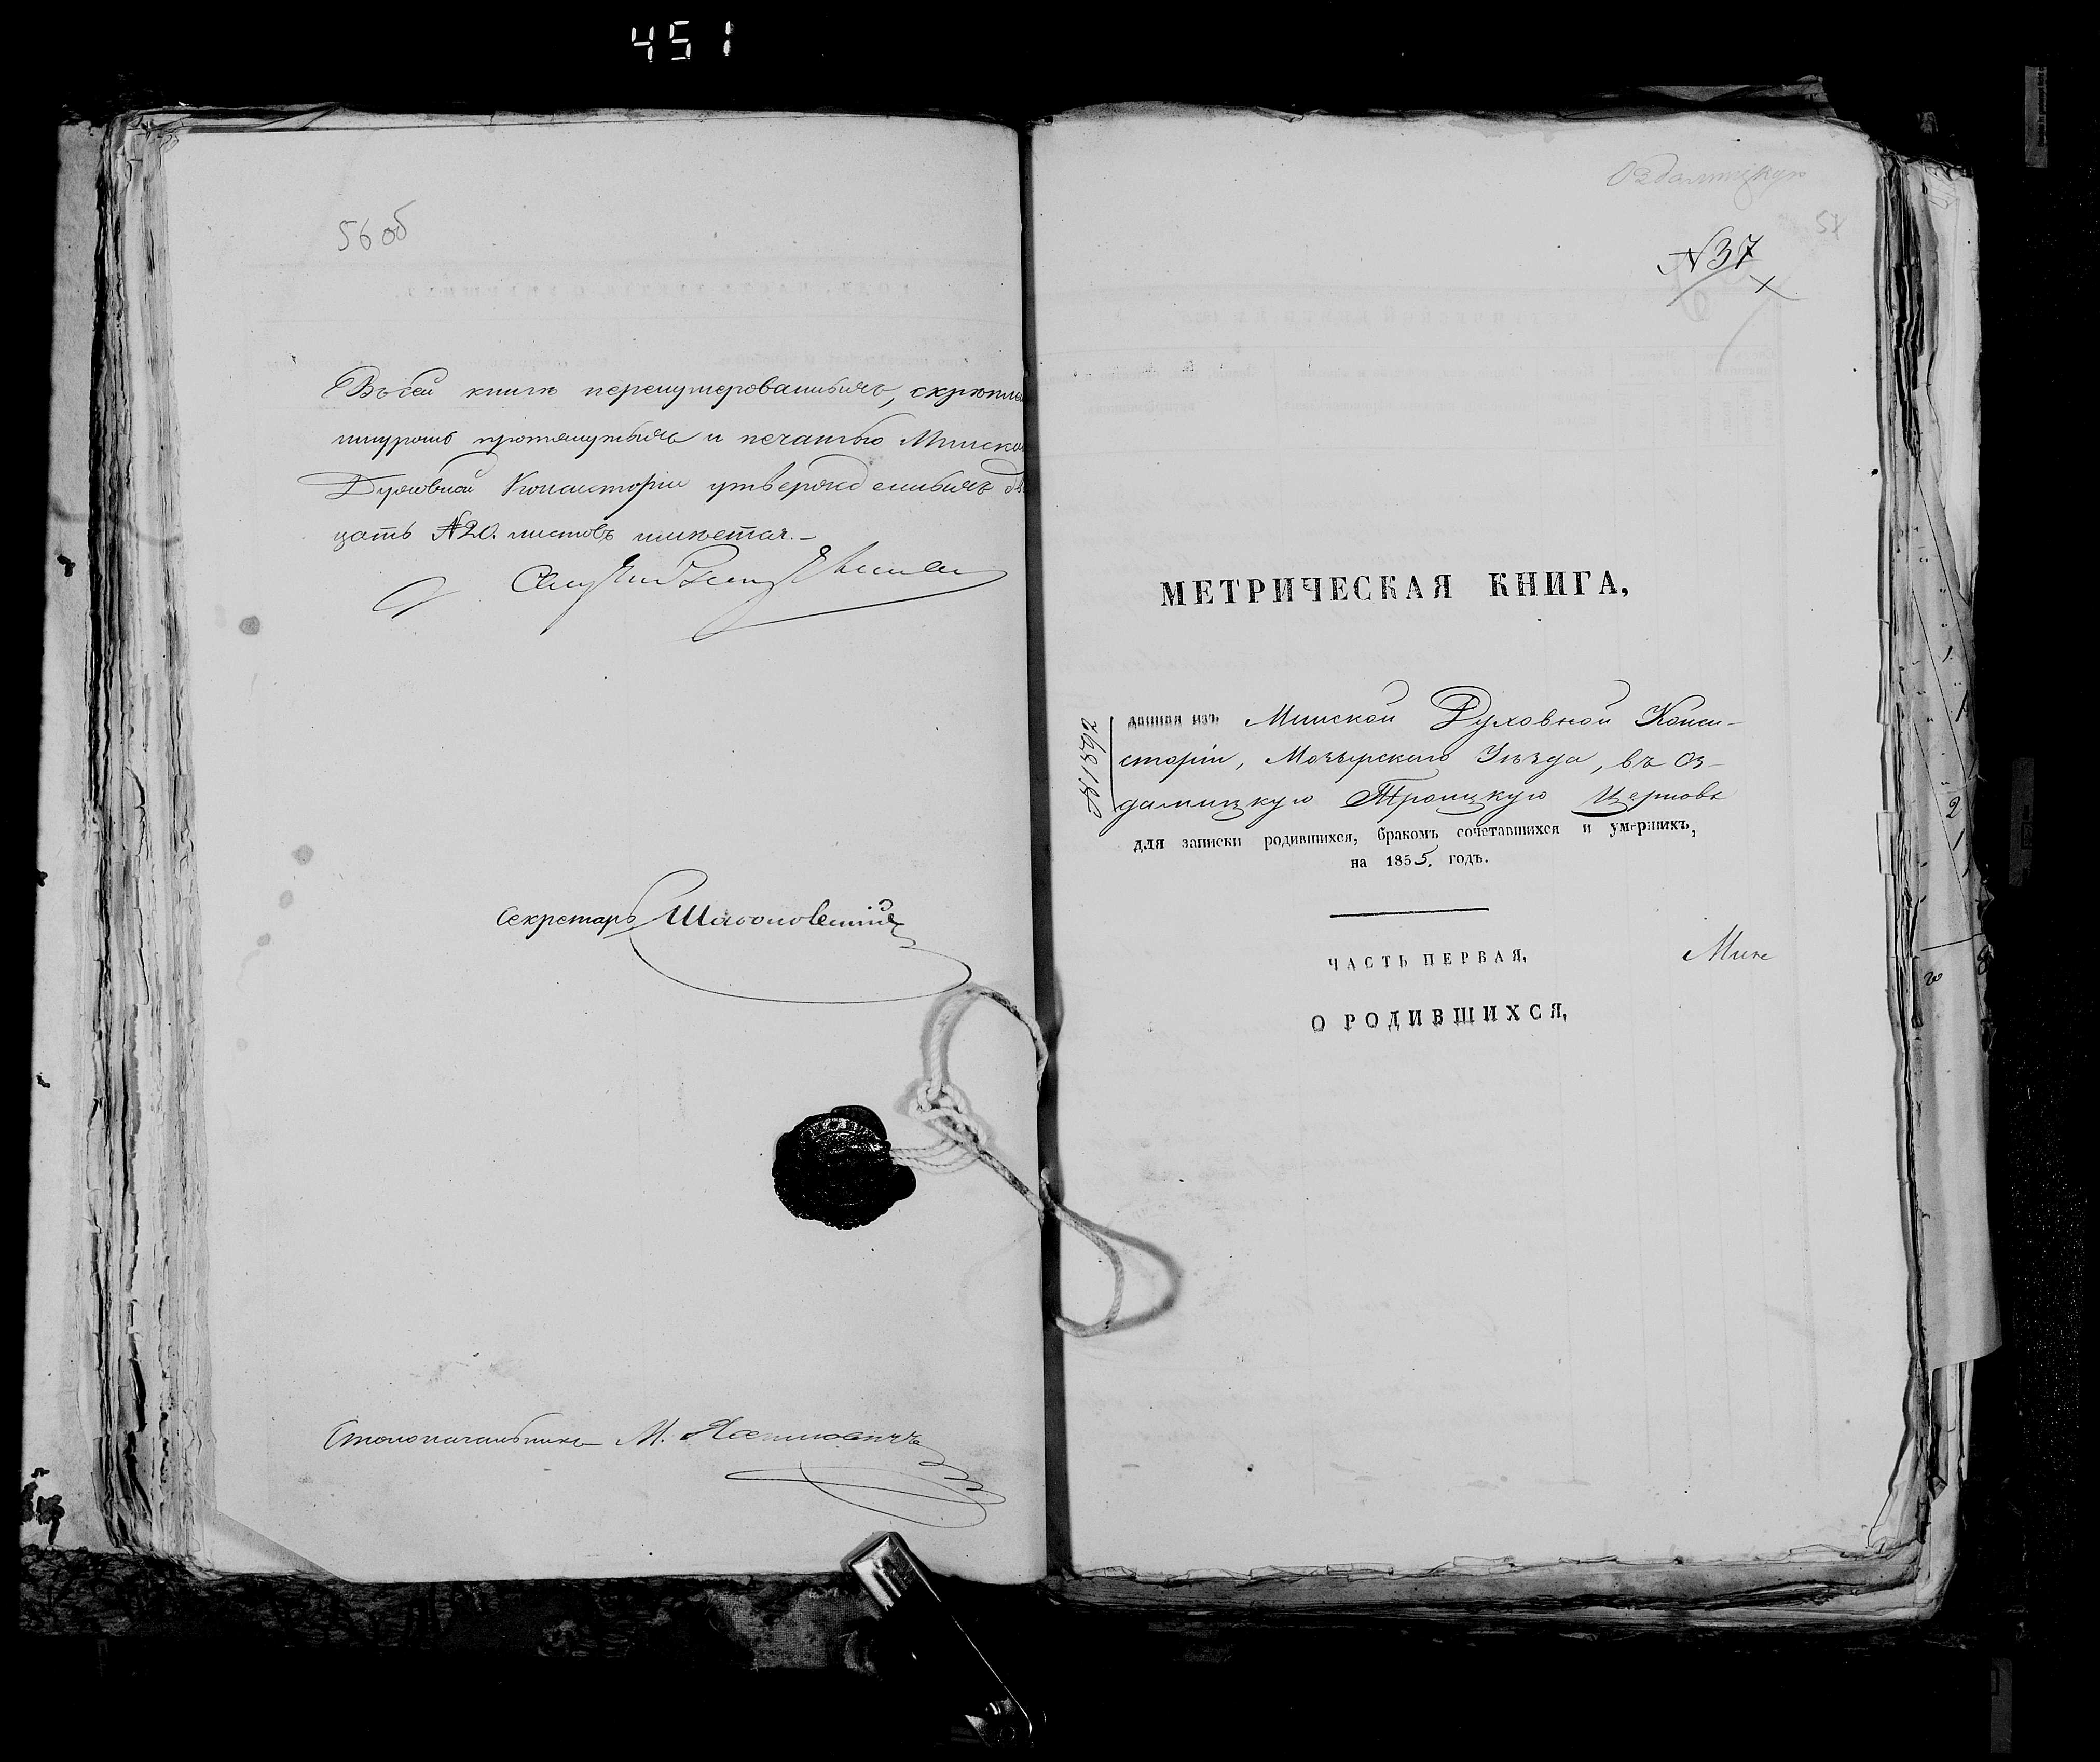 451
56 об
Въ сей книгѣ перенумерованныхъ, скрѣпле
шнуромъ протянутыхъ и печатью Минско
Духовной Консисторіи утвержденныхъ дв
цать №20. листовъ имѣется.—
Секретарь
Столоначальникъ М.
Оздамицкую
57
N 37
МЕТРИЧЕСКАЯ КНИГА,
№1392
данная изъ Минской Духовной Конси-
сторіи, Мозырскаго Уѣзда, въ Оз-
дамицкую Троицкую Церковь
для записки родившихся, бракомъ сочетавшихся и умершихъ,
на 1855. годъ.
ЧАСТЬ ПЕРВАЯ,
О РОДИВШИХСЯ,